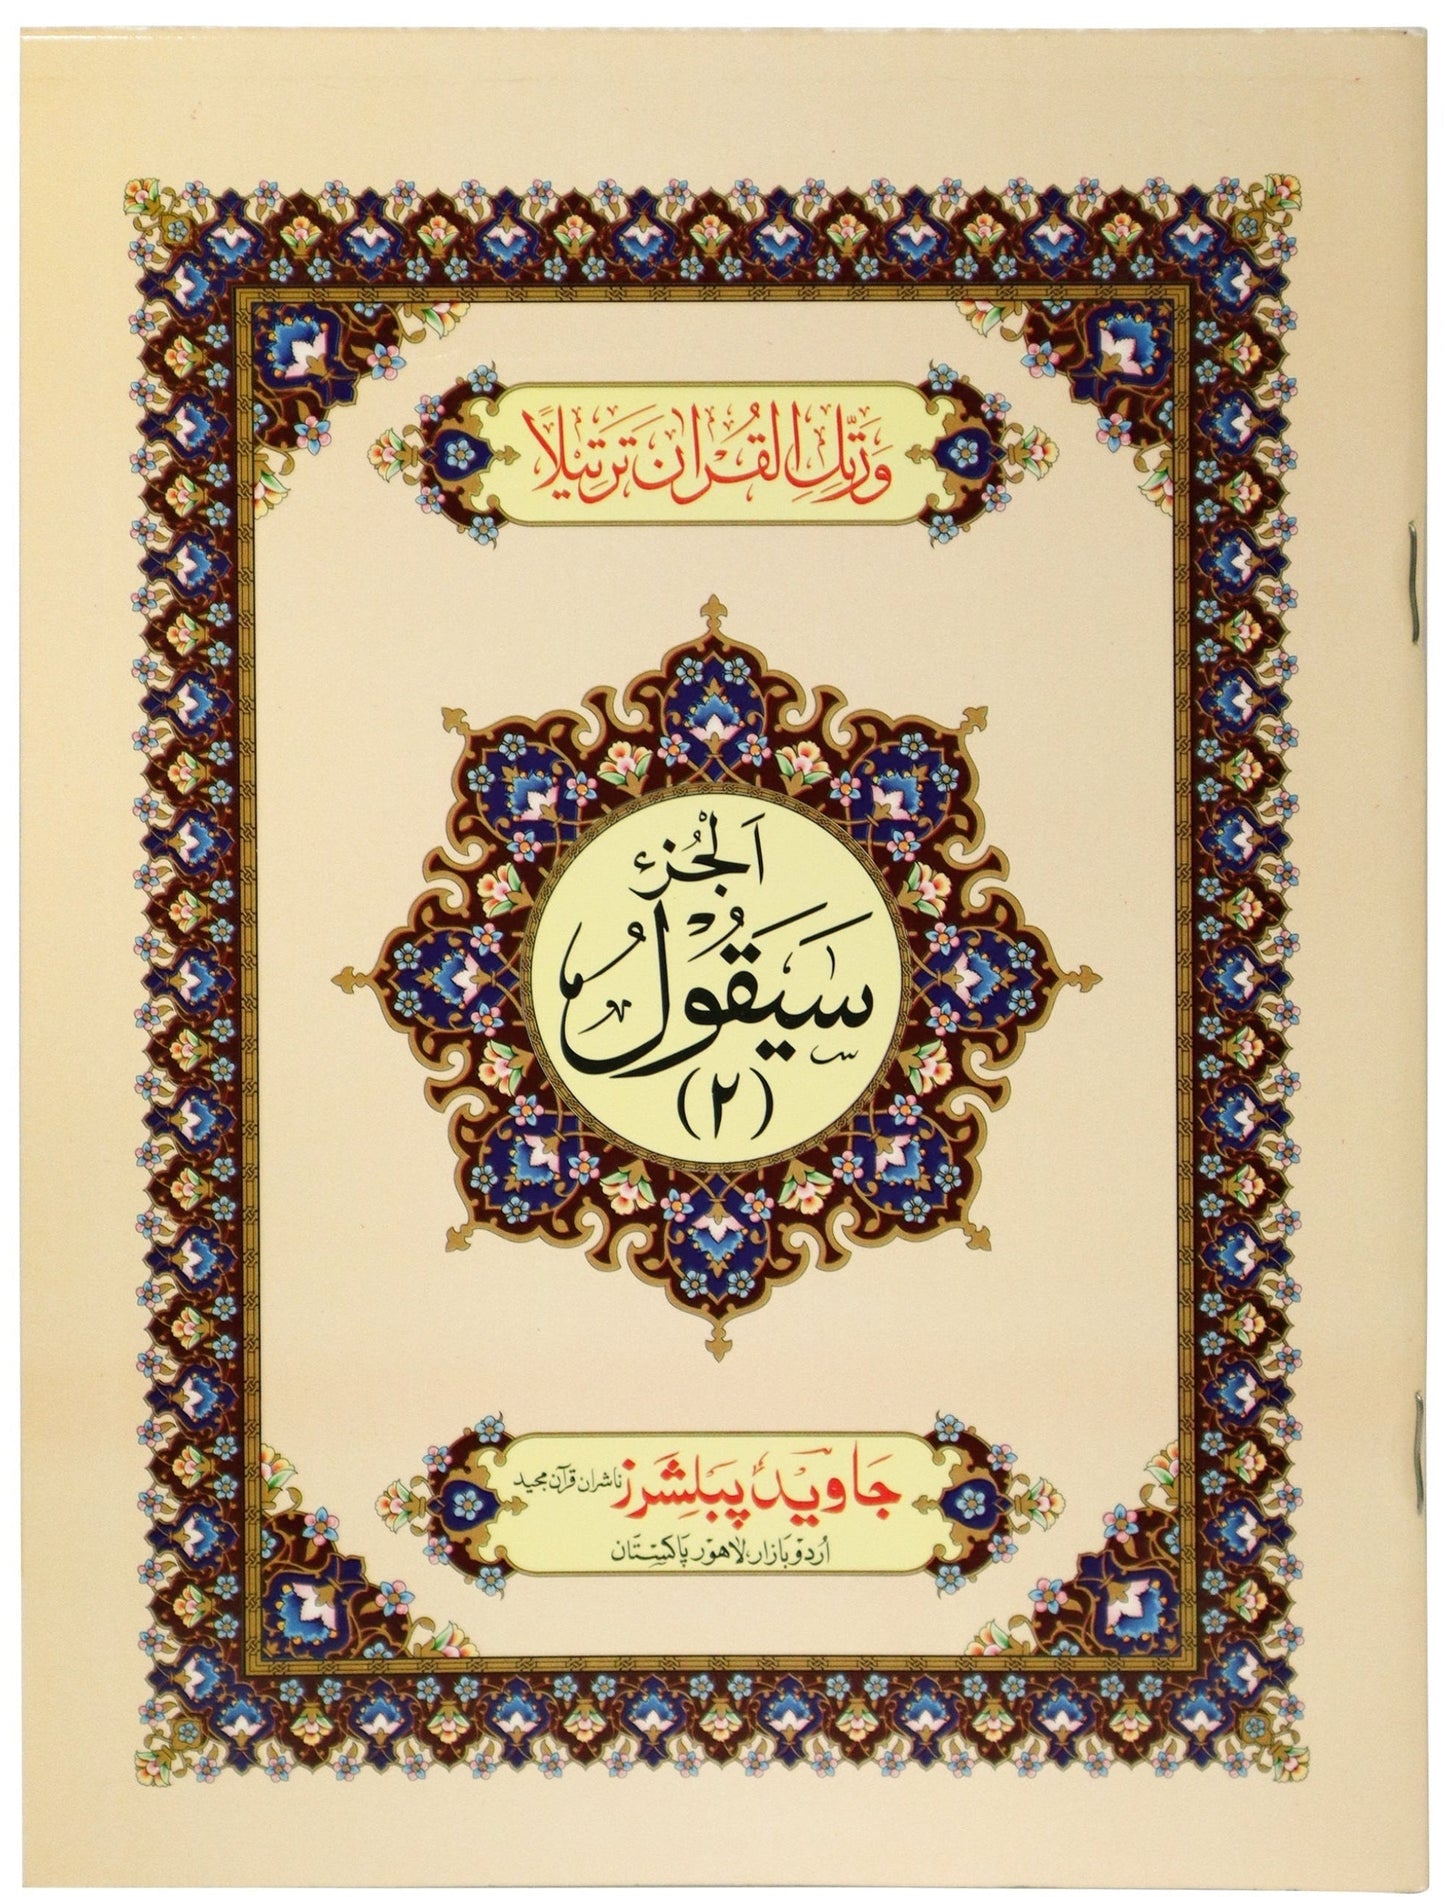 وَرَتِّلِ الْقُرْاٰنَ تَرْتِيْلًا
اَلْجُزْءُ
سَيَقُوْلُ
(۲)
جاوید پبلشرز ناشران قرآن مجید
اُردو بازار، لاھور پاکستان